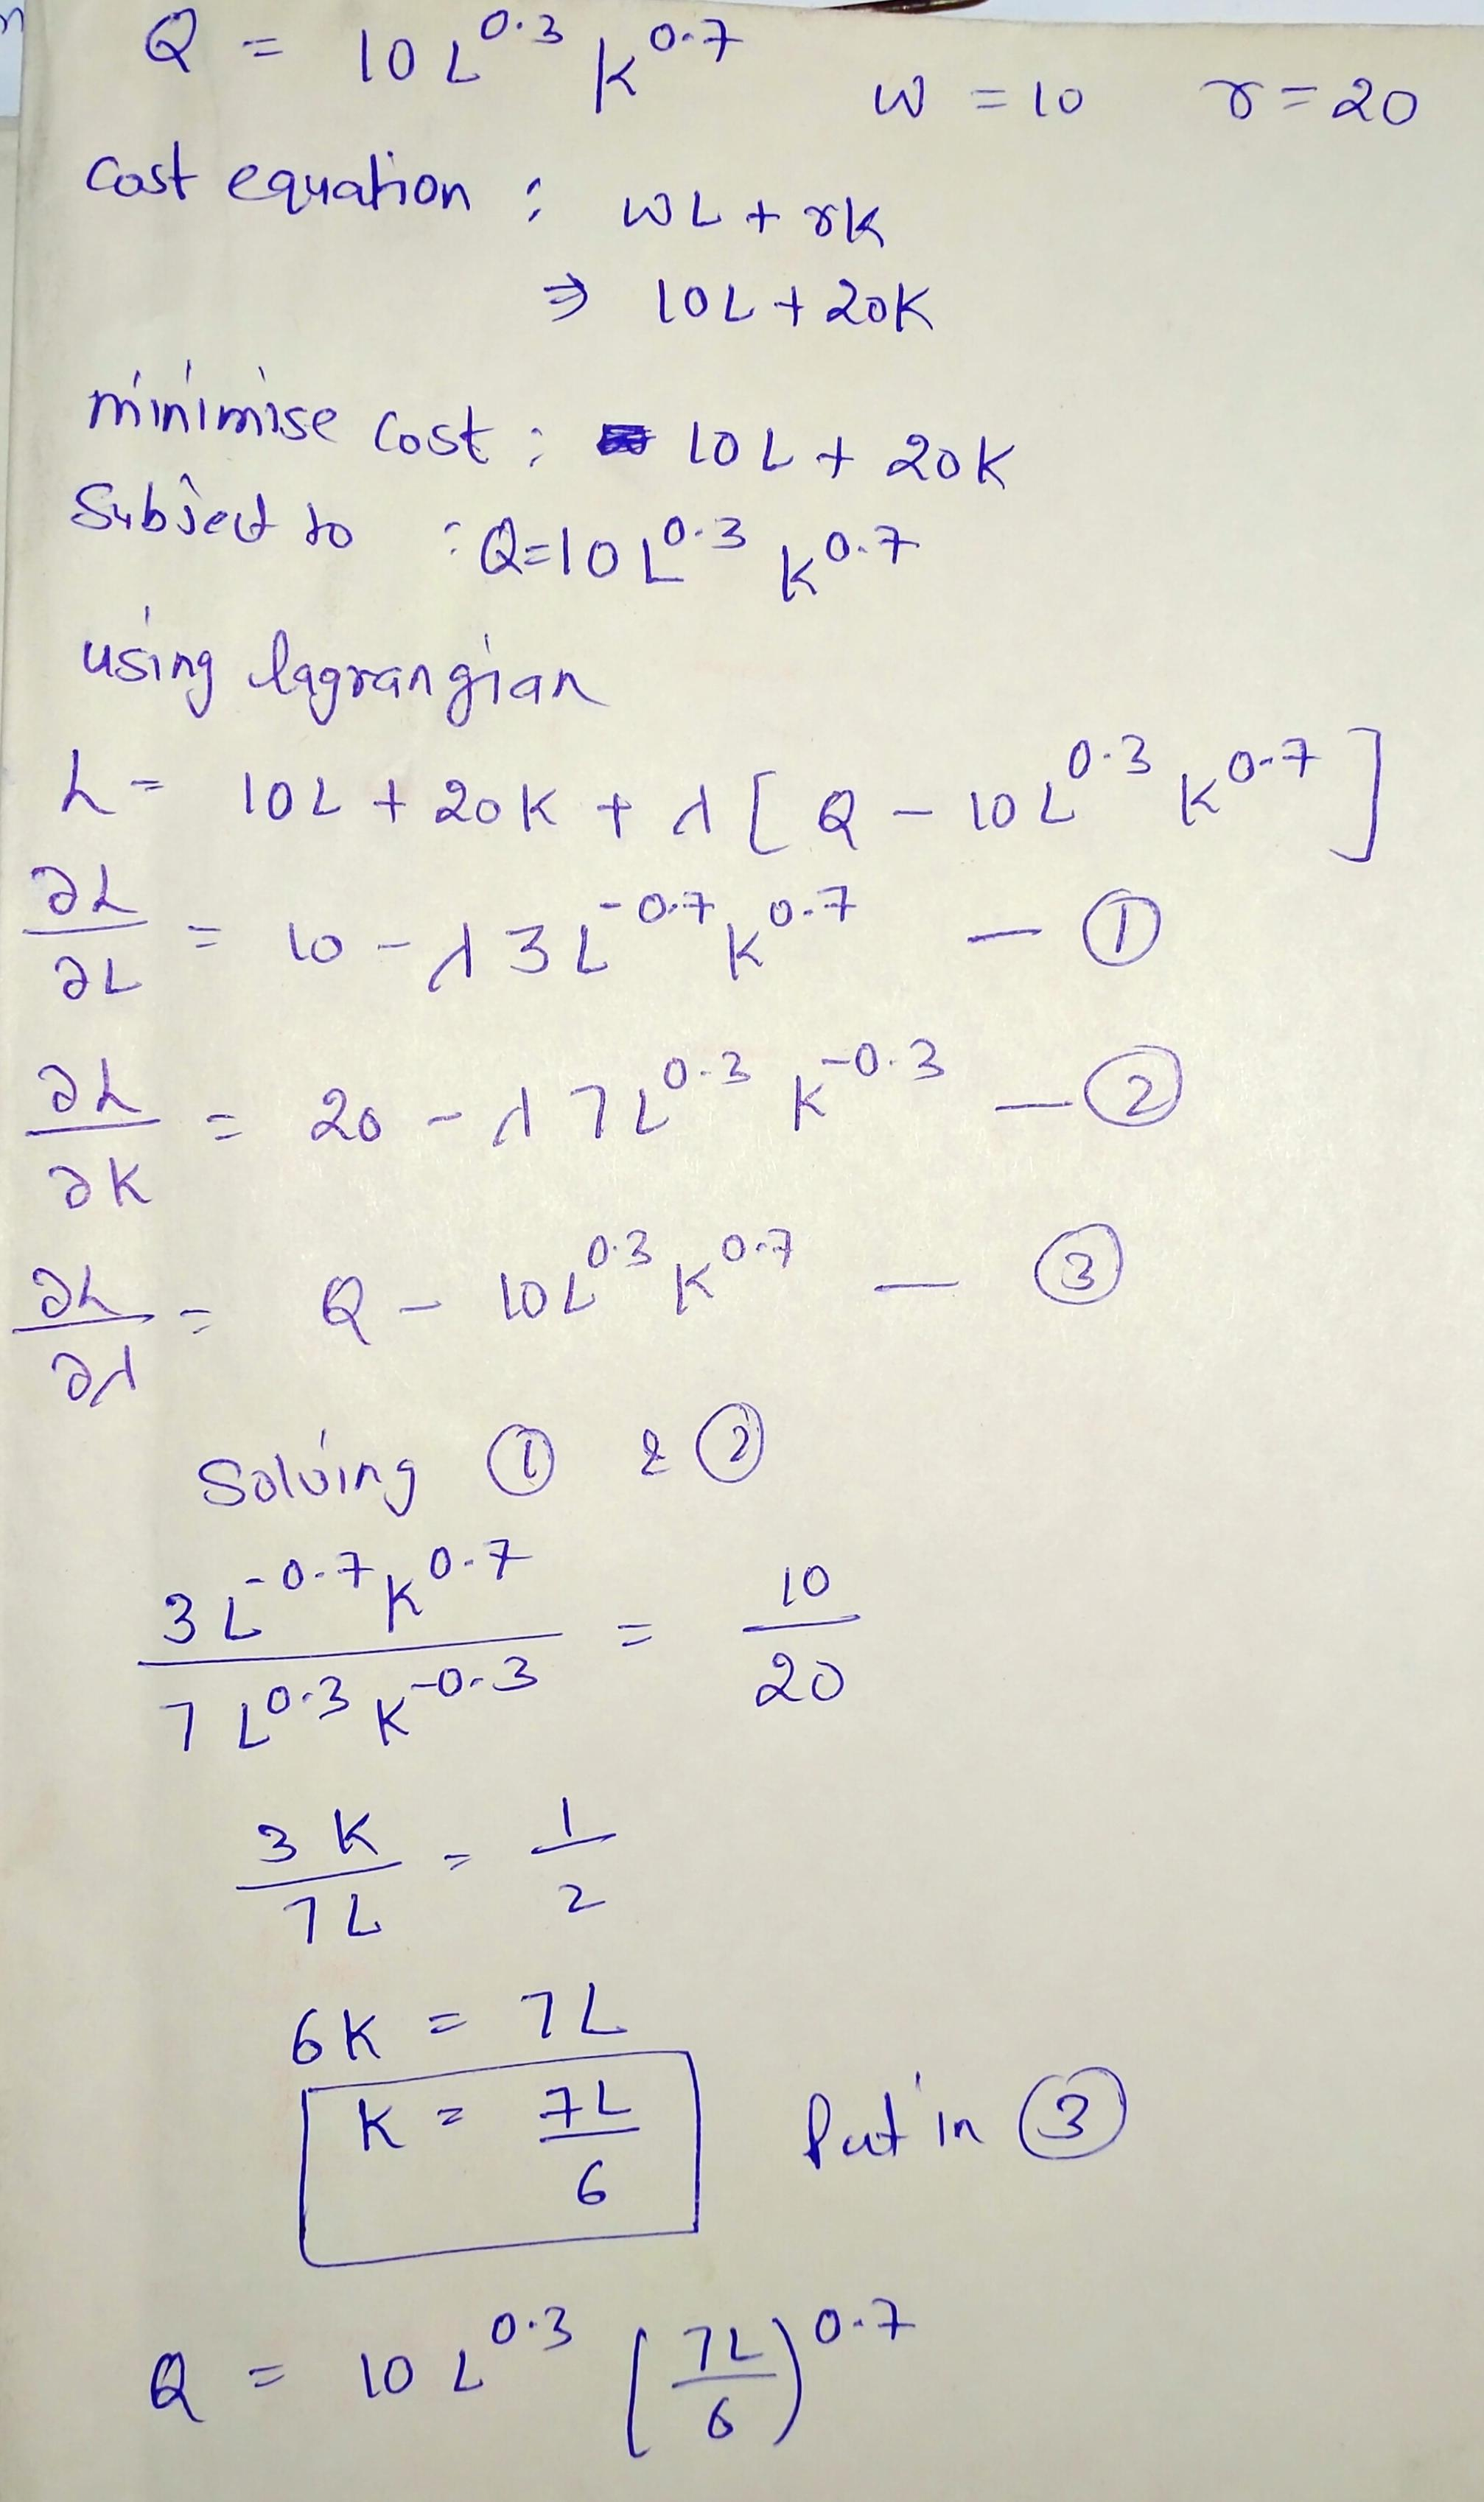 Q = 10 L^0.3 K^0.7
w = 10 r = 20
Cost equation : wL + rK
⇒ 10L + 20K
minimise Cost : 10L + 20K
Subject to : Q=10 L^0.3 K^0.7
using lagrangian
L = 10L + 20K + λ [ Q - 10 L^0.3 K^0.7 ]
∂L/∂L = 10 - λ 3 L^-0.7 K^0.7 — ①
∂L/∂K = 20 - λ 7 L^0.3 K^-0.3 — ②
∂L/∂λ = Q - 10 L^0.3 K^0.7 — ③
Solving ① & ②
3 L^-0.7 K^0.7 / 7 L^0.3 K^-0.3 = 10/20
3K/7L = 1/2
6K = 7L
K = 7L/6 Put in ③
Q = 10 L^0.3 (7L/6)^0.7